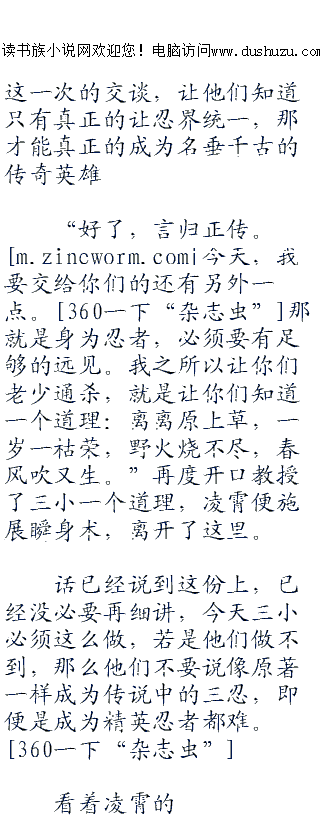 读书族小说网欢迎您！电脑访问www.dushuzu.com
这一次的交谈，让他们知道
只有真正的让忍界统一，那
才能真正的成为名垂千古的
传奇英雄
“好了，言归正传。
[m.zincworm.com|今天，我
要交给你们的还有另外一
点。[360一下“杂志虫”]那
就是身为忍者，必须要有足
够的远见。我之所以让你们
老少通杀，就是让你们知道
一个道理：离离原上草，一
岁一祜荣，野火烧不尽，春
风吹又生。”再度开口教授
了三小一个道理，凌霄便施
展瞬身术，离开了这里。
话已经说到这份上，已
经没必要再细讲，今天三小
必须这么做，若是他们做不
到，那么他们不要说像原著
一样成为传说中的三忍，即
便是成为精英忍者都难。
[360一下“杂志虫”]
看着凌霄的